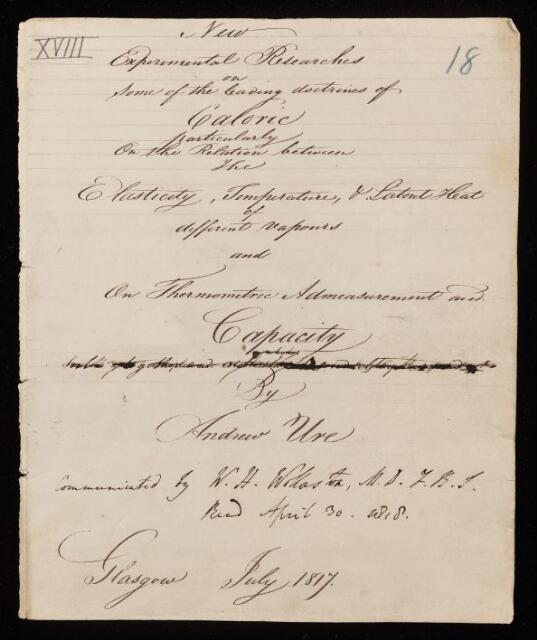 XVIII
18
New
Experimental Researches
on
Some of the leading doctrines of
Caloric
particularly
On the Relation between
the
Elasticity, Temperature, & Latent Heat
of
different vapours
and
On Thermometric Admeasurement and
Capacity
By
Andrew Ure
Communicated by W. H. Wollaston, M.D. F.R.S.
Read April 30. 1818.
Glasgow July 1817.